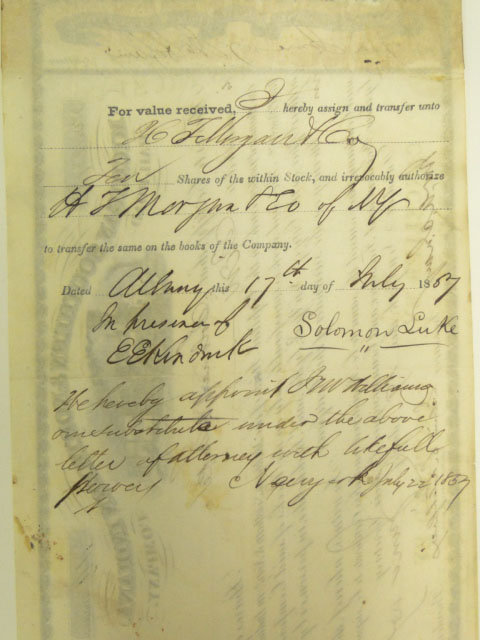 For value received, I hereby assign and transfer unto
H T Morgan & Co
Ten Shares of the within Stock, and irrevocably authorize
H T Morgan & Co of NY
to transfer the same on the books of the Company.
Dated Albany this 17th day of July 1857
In presence of Solomon Luke
We hereby appoint
our substitute under the above
letter of attorney with like full
power New York July 22 1857